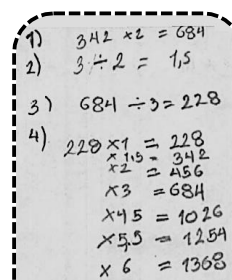 1) 342 x2 = 684
2) 3 ÷ 2 = 1,5
3) 684 ÷ 3 = 228
4) 228 x1 = 228
x 1,5 = 342
x2 = 456
x3 = 684
x4 5 = 1026
x5,5 = 1254
x 6 = 1368